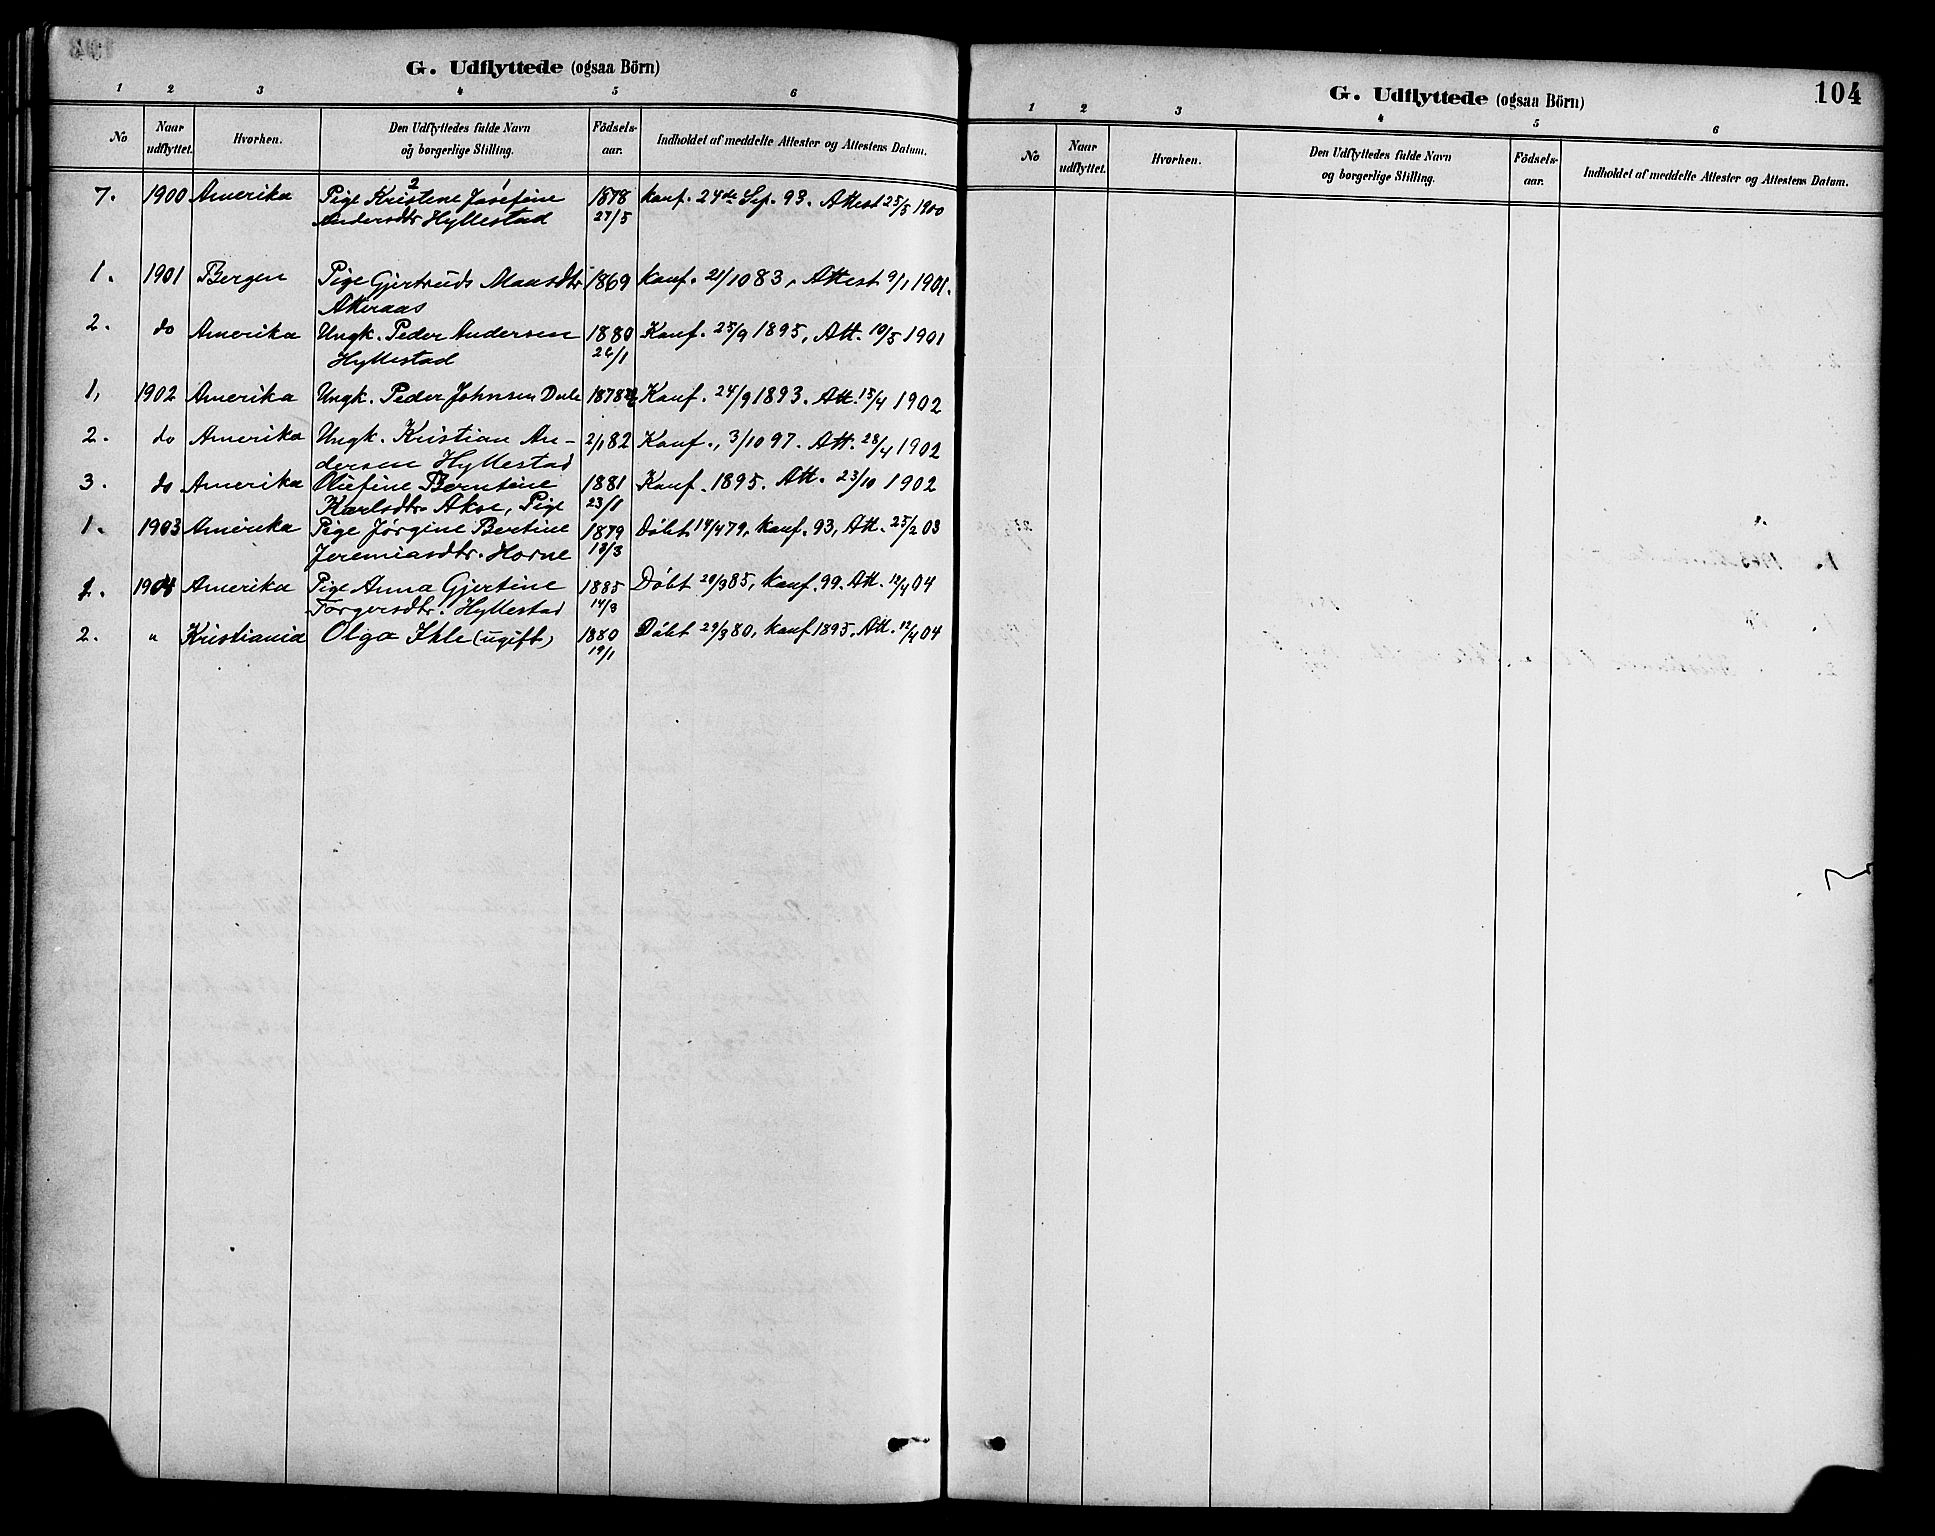 G. Udflyttede (ogsaa Börn)
1 2 3 4 5 6
No Naar udflyttet. Hvorhen. Den Udflyttedes fulde Navn og borgerlige Stilling. Födsels-aar. Indholdet af meddelte Attester og Attestens Datum.
7. 1900 Amerika Pige Kristene Josefine 1878 Konf. 24de Sep. 93. Attest 25/5 1900
Andersdtr Hyllestad 27/5
1. 1901 Bergen Pige Gjertruds Monsdtr 1869 Konf. 21/10 83, Attest 9/1 1901.
Atteraas
2. do Amerika Ungk. Peder Andersen 1880 Konf. 25/9 1895, Att. 10/5 1901
Hyllestad 26/1
1, 1902 Amerika Ungk. Peder Johnsen Dale 1878 Konf. 24/9 1893. Att. 15/4 1902
2. do Amerika Ungk. Kristian An- 2/1 82 Konf., 3/10 97. Att. 28/4 1902
dersen Hyllestad
3. do Amerika Oliefine Berntine 1881 Konf. 1895. Att. 23/10 1902
Karlsdtr Akse, Pige 23/1
1. 1903 Amerika Pige Jørgine Bertine 1879 Döbt 14/4 79, Konf. 93, Att. 25/2 03
Jeremiasdtr. Horne 18/3
1. 1904 Amerika Pige Anna Gjertine 1885 Döbt 20/9 85, Konf. 99. Att. 12/4 04
Torgersdtr. Hyllestad 14/3
2. " Kristiania Olga Ihle (ugift) 1880 Döbt 29/3 80, Konf 1895, Att. 12/4 04
19/1
G. Udflyttede (ogsaa Börn)
104
1 2 3 4 5 6
No Naar udflyttet. Hvorhen. Den Udflyttedes fulde Navn og borgerlige Stilling. Födsels-aar. Indholdet af meddelte Attester og Attestens Datum.